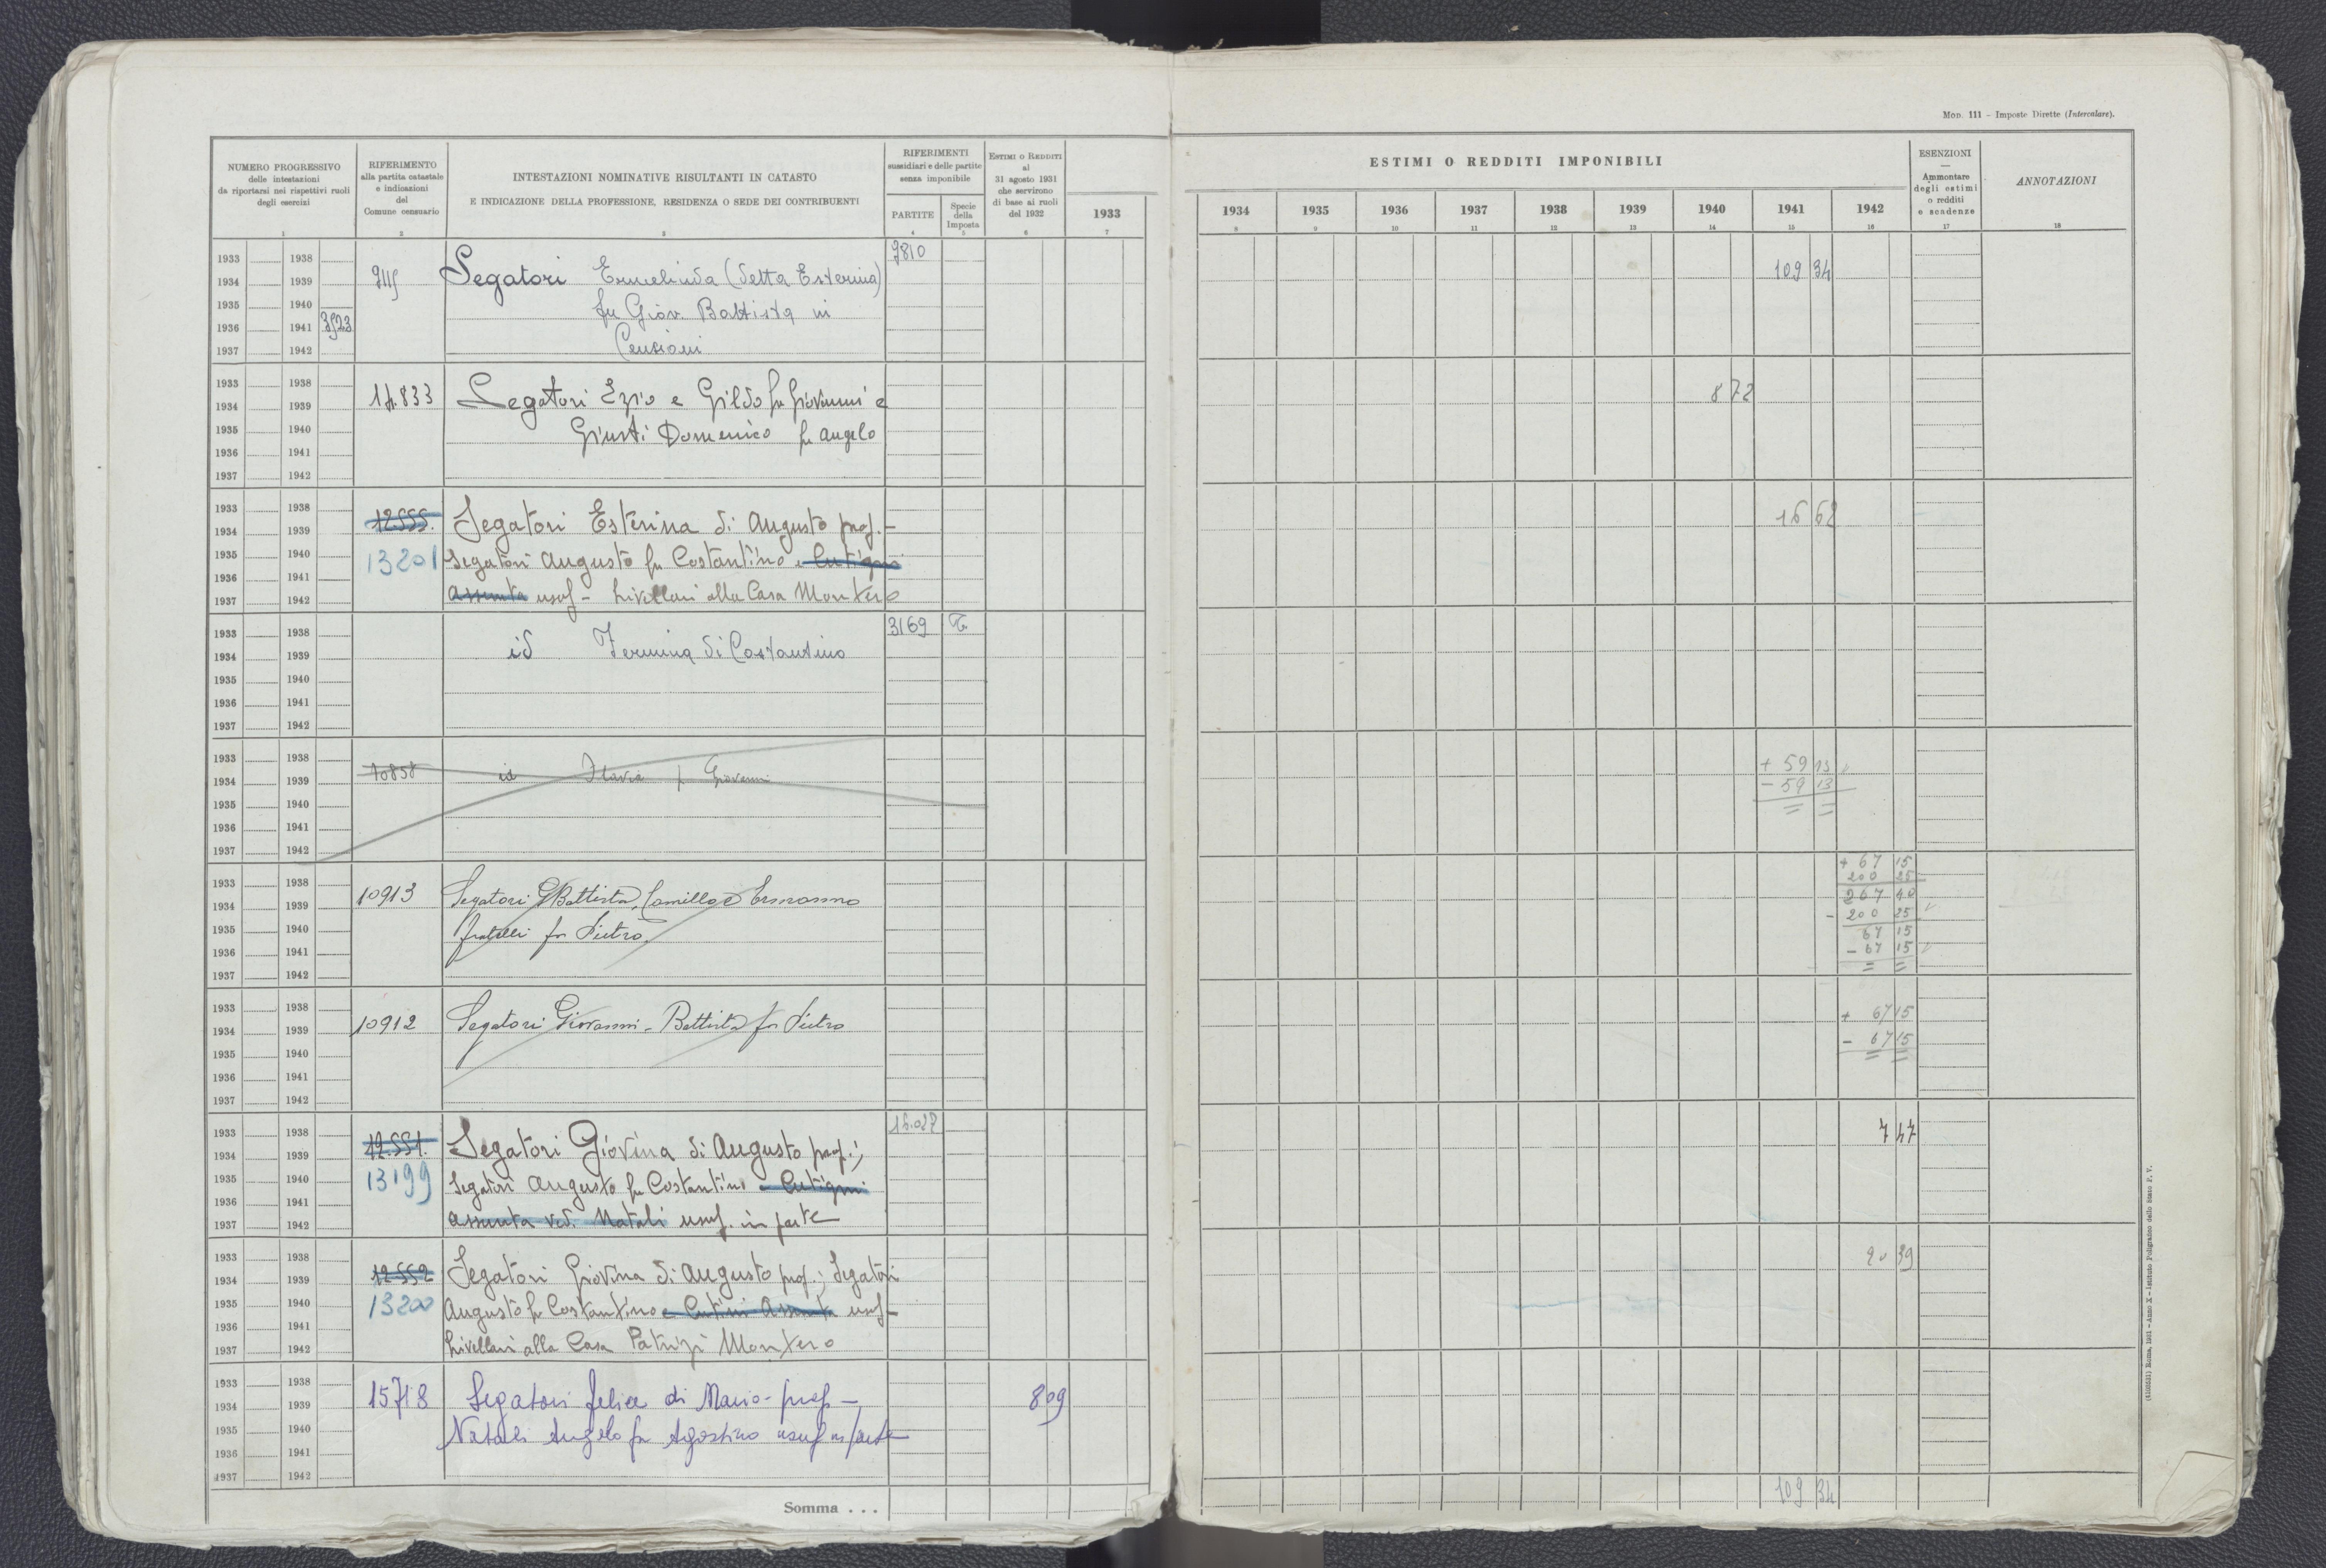 Mod. 111 – Imposte Dirette (Intercalare).
NUMERO PROGRESSIVO
delle intestazioni
da riportarsi nei rispettivi ruoli
degli esercizi
1
RIFERIMENTO
alla partita catastale
e indicazioni
del
Comune censuario
2
INTESTAZIONI NOMINATIVE RISULTANTI IN CATASTO
E INDICAZIONE DELLA PROFESSIONE, RESIDENZA O SEDE DEI CONTRIBUENTI
3
RIFERIMENTI
sussidiari e delle partite
senza imponibile
PARTITE
4
Specie
della
Imposta
5
Estimi o Redditi
al
31 agosto 1931
che servirono
di base ai ruoli
del 1932
6
1933
7
ESTIMI O REDDITI IMPONIBILI
1934 1935 1936 1937 1938 1939 1940 1941 1942
8 9 10 11 12 13 14 15 16
ESENZIONI
—
Ammontare
degli estimi
o redditi
e scadenze
17
ANNOTAZIONI
18
1933 1938 9810
1934 1939 Segatori Ermelinda (detta Esterina) 109 34
1935 1940 fu Giov. Battista in
1936 1941 3523
1937 1942 Censioni
1933 1938
1934 1939 14.833 Segatori Ezio e Gildo fu Giovanni e 8 72
1935 1940 Giusti Domenico fu Angelo
1936 1941
1937 1942
1933 1938
1934 1939 12555. Segatori Esterina di Augusto prop.- 16 62
1935 1940 13201 Segatori Augusto fu Costantino e Cutigni
1936 1941
1937 1942 Assunta usuf - livellari alla Casa Montero
1933 1938 3169 T
1934 1939 id Fermina di Costantino
1935 1940
1936 1941
1937 1942
1933 1938 + 59 13
1934 1939 10858 id Flavia fu Giovanni - 59 13
1935 1940 = =
1936 1941
1937 1942
1933 1938 + 67 15
200 25
1934 1939 10913 Segatori GBattista, Camillo e Ermanno 267 40
- 200 25
1935 1940 fratelli fu Pietro 67 15
1936 1941 - 67 15
1937 1942 = =
1933 1938 + 67 15
1934 1939 10912 Segatori Giovanni - Battista fu Pietro
1935 1940 - 67 15
1936 1941 = =
1937 1942
1933 1938 7 47
1934 1939 12.551. Segatori Giovina di Augusto prop.;
1935 1940 13199 Segatori Augusto fu Costantino e Cutigni
1936 1941
1937 1942 Assunta ved. Natali usuf. in parte
1933 1938 20 39
1934 1939 12552 Segatori Giovina di Augusto prop.; Segatori
1935 1940 13200 Augusto fu Costantino e Cutini Assunta usuf-
1936 1941
1937 1942 livellari alla Casa Patrizi Montero
1933 1938
1934 1939 15718 Segatori Felice di Mario - prop - 8 09
1935 1940 Natali Angelo fu Agostino usuf in parte
1936 1941
1937 1942
Somma . . . 109 34
Roma, 1931 – Anno X – Istituto Poligrafico dello Stato P. V.